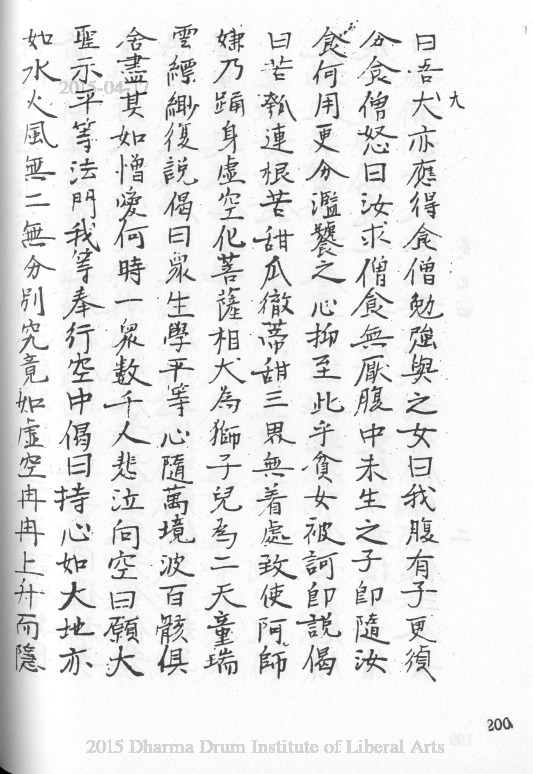 犬
曰吾犬亦應得食僧勉強與之女曰我腹有子更須
分食僧怒曰汝求僧食無厭腹中未生之子即隨汝
食何用更分濫饕之心抑至此乎貧女被訶即說偈
曰苦瓠連根苦甜瓜徹蒂甜三界無着處致使阿師
嫌乃踊身虛空化菩薩相犬為獅子兒為二天童瑞
雲縹緲復說偈曰眾生學平等心隨萬境波百骸俱
舍盡其如憎愛何時一眾數千人悲泣向空曰願大
聖示平等法門我等奉行空中偈曰持心如大地亦
如水火風無二無分別究竟如虛空冉冉上升而隱
200
2015-04-17
2015 Dharma Drum Institute of Liberal Arts